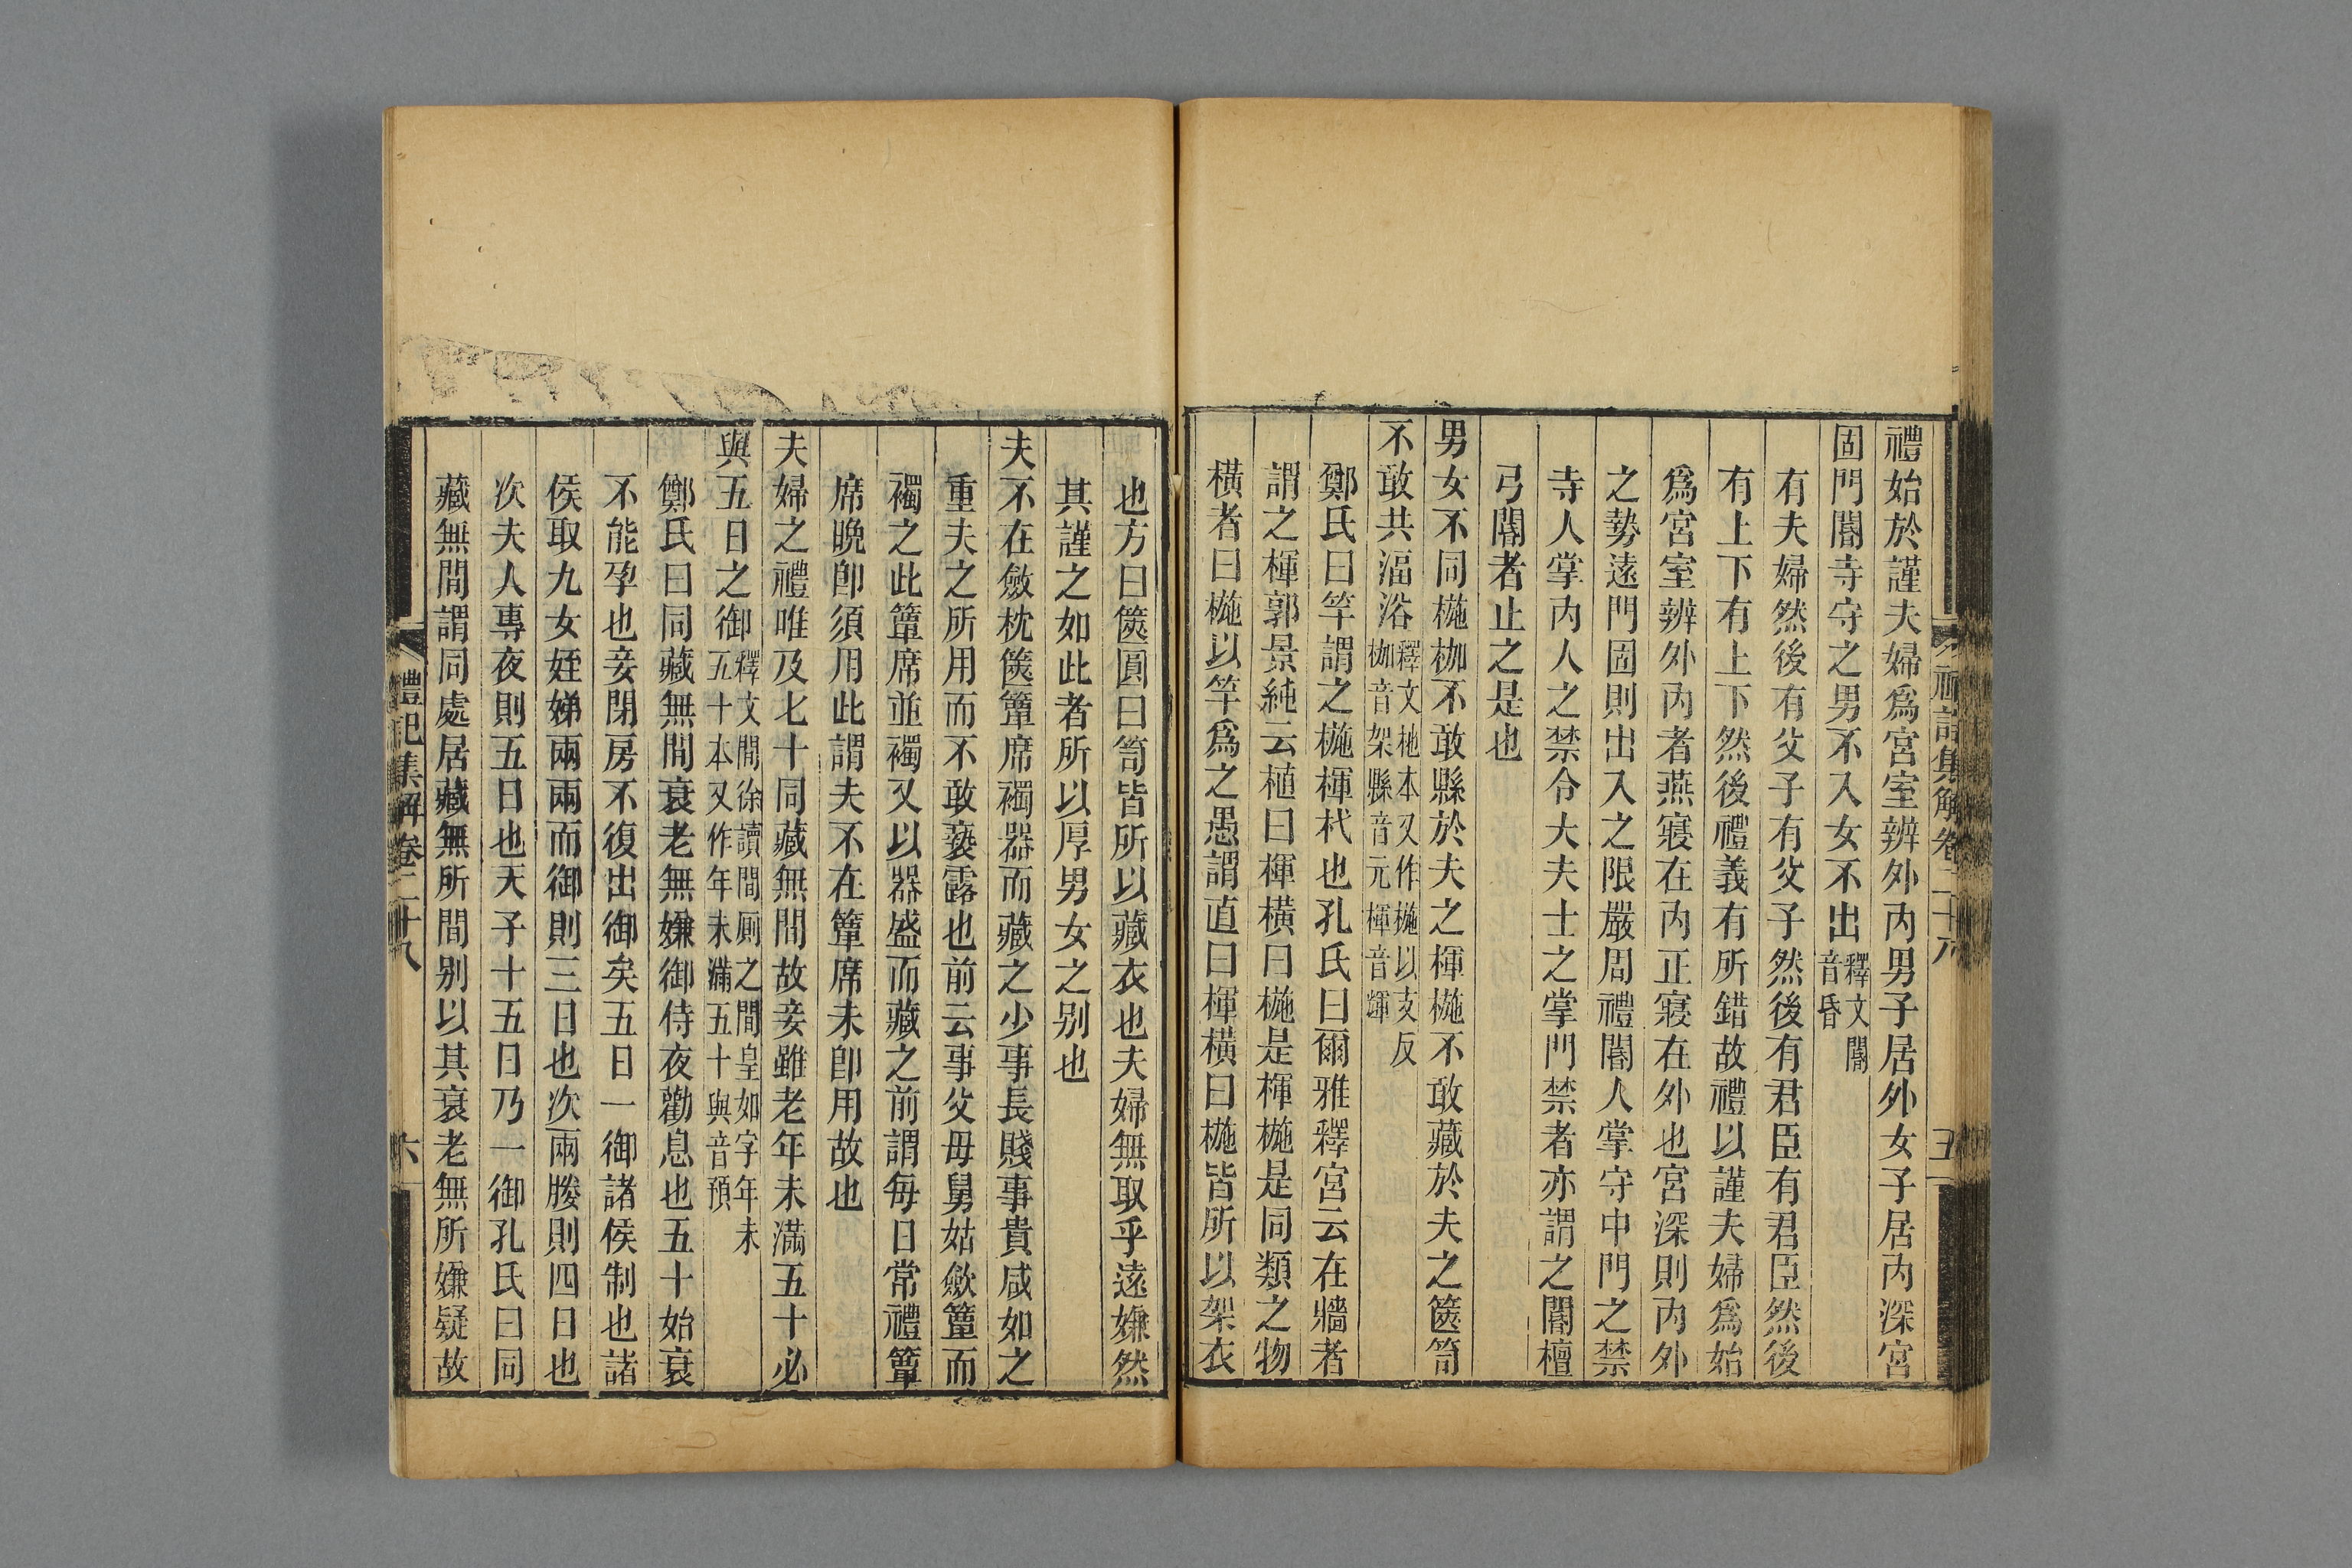 禮始於謹夫婦爲宮室辨外内男子居外女子居内深宮
固門閽寺守之男不入女不出釋文閽
音昏
有夫婦然後有父子有父子然後有君臣有君臣然後
有上下有上下然後禮義有所錯故禮以謹夫婦爲始
爲宮室辨外内者燕寢在内正寢在外也宮深則内外
之勢遠門固則出入之限嚴周禮閽人掌守中門之禁
寺人掌内人之禁令大夫士之掌門禁者亦謂之閽檀
弓閽者止之是也
男女不同椸枷不敢縣於夫之楎椸不敢藏於夫之篋笥
不敢共湢浴釋文杝本又作椸以支反
枷音架縣音元楎音輝
鄭氏曰竿謂之椸楎杙也孔氏曰爾雅釋宮云在牆者
謂之楎郭景純云植曰楎橫曰椸是楎椸是同類之物
橫者曰椸以竿爲之愚謂直曰楎橫曰椸皆所以架衣
也方曰篋圓曰笥皆所以藏衣也夫婦無取乎遠嫌然
其謹之如此者所以厚男女之別也
夫不在斂枕篋簟席襡器而藏之少事長賤事貴咸如之
重夫之所用而不敢褻露也前云事父母舅姑斂簟而
襡之此簟席並襡又以器盛而藏之前謂每日常禮簟
席晚卽須用此謂夫不在簟席未卽用故也
夫婦之禮唯及七十同藏無間故妾雖老年未滿五十必
與五日之御釋文間徐讀間厠之間皇如字年未
五十本又作年未滿五十與音預
鄭氏曰同藏無間衰老無嫌御侍夜勸息也五十始衰
不能孕也妾閉房不復出御矣五日一御諸侯制也諸
侯取九女姪娣兩兩而御則三日也次兩媵則四日也
次夫人專夜則五日也天子十五日乃一御孔氏曰同
藏無間謂同處居藏無所間別以其衰老無所嫌疑故
禮記集解卷二十八
六